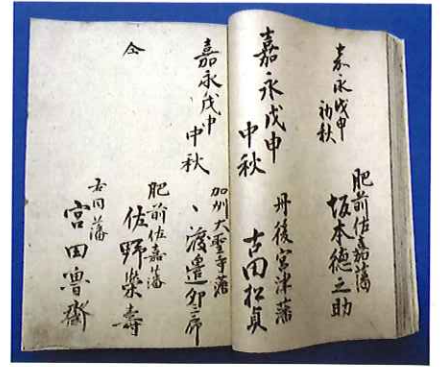 嘉永戊申
初秋
肥前佐嘉藩
坂本徳之助
嘉永戊申
中秋
丹後宮津藩
古田松貞
嘉永戊申
中秋
加州大聖寺藩
渡邉卯三郎
仝
肥前佐嘉藩
佐野栄寿
右同藩
宮田魯斎